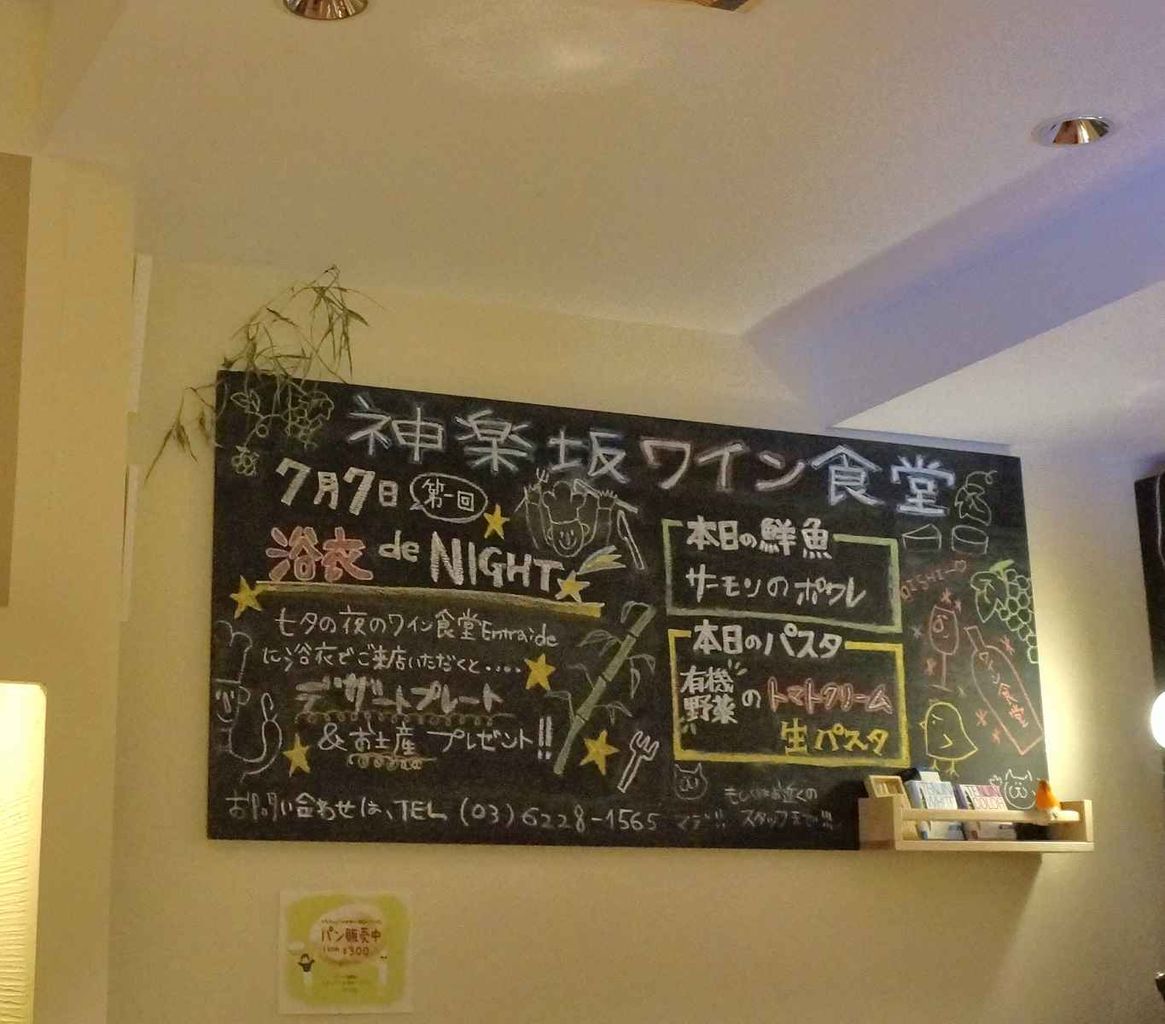 神楽坂ワイン食堂
7月7日 第一回
浴衣 de NIGHT
七夕の夜のワイン食堂Entraide
に浴衣でご来店いただくと....
デザートプレート
&お土産 プレゼント!!
お問い合わせは、TEL (03)6228-1565 マデ!!
本日の鮮魚
サーモンのポワレ
本日のパスタ
有機野菜のトマトクリーム
生パスタ
もしくはお近くの
スタッフまで!!!
OISHI~
ワイン食堂
パン販売中
¥300